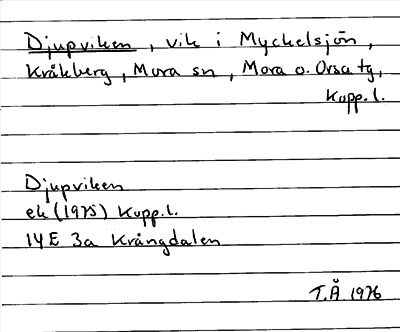 Djupviken, vik i Myckelsjön,
Kråkberg, Mora sn, Mora o. Orsa tg,
Kopp.l.
Djupviken
ek (1975) Kopp.l.
14E 3a Krångdalen
T.Å 1976